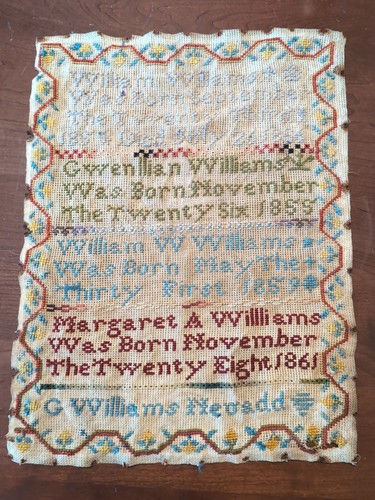 William Williams
Was Born September
The Twenty
Gwenllian Williams
Was Born November
The Twenty Six 1855
William W Williams
Was Born May The
Thirty First 1859
Margaret A Williams
Was Born November
The Twenty Eight 1861
G Williams Nevadd